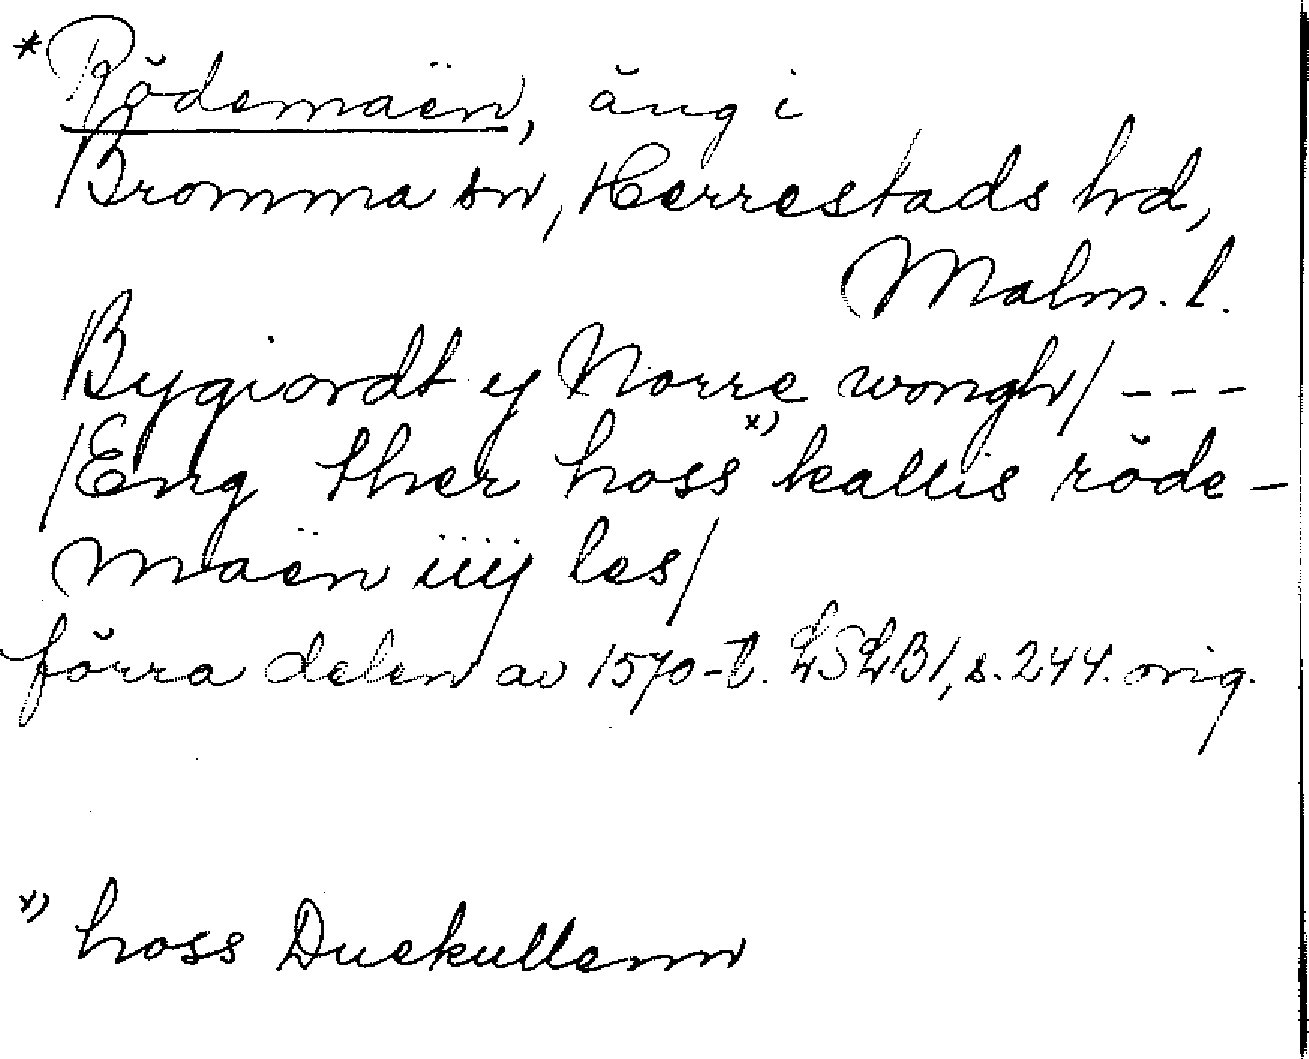 *Rödemaën, äng i
Bromma sn, Herrestads hd,
Malm. l.
Bygiordt y Norre wongh/ ---
/Eng ther hoss x) kallis röde-
maën iiij les/
förra delen av 1570-t. LSLB1, s. 244. orig.
x) hoss Duekullenn